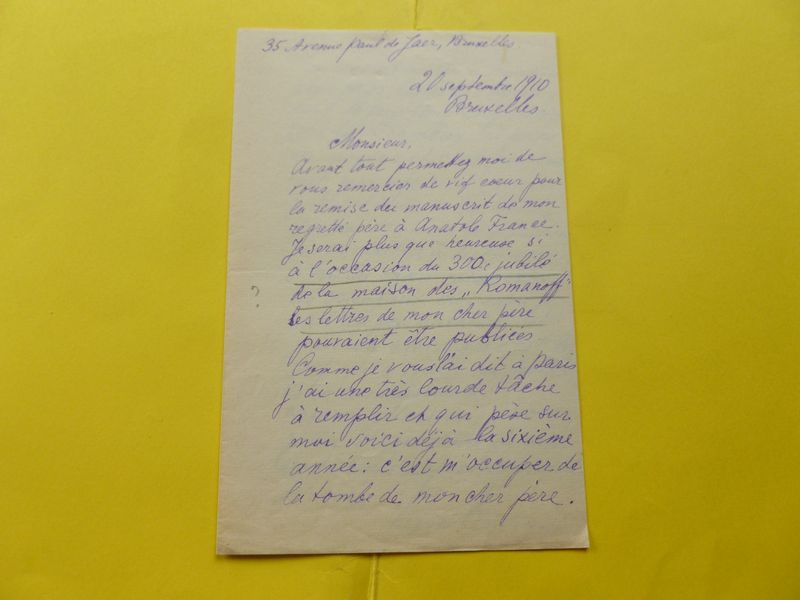 35 Avenue Paul de Jaer, Bruxelles.
20 septembre 1910
Bruxelles.
Monsieur,
Avant tout permettez moi de
vous remercier de vif coeur pour
la remise du manuscrit de mon
regretté père à Anatole France.
Je serai plus que heureuse si
à l'occasion du 300e jubilé
de la maison des „Romanoff"
?
les lettres de mon cher père
pouvaient être publiées
Comme je vous l'ai dit à Paris
j'ai une très lourde tâche
à remplir et qui pèse sur
moi voici déjà la sixième
année: c'est m'occuper de
la tombe de mon cher père.